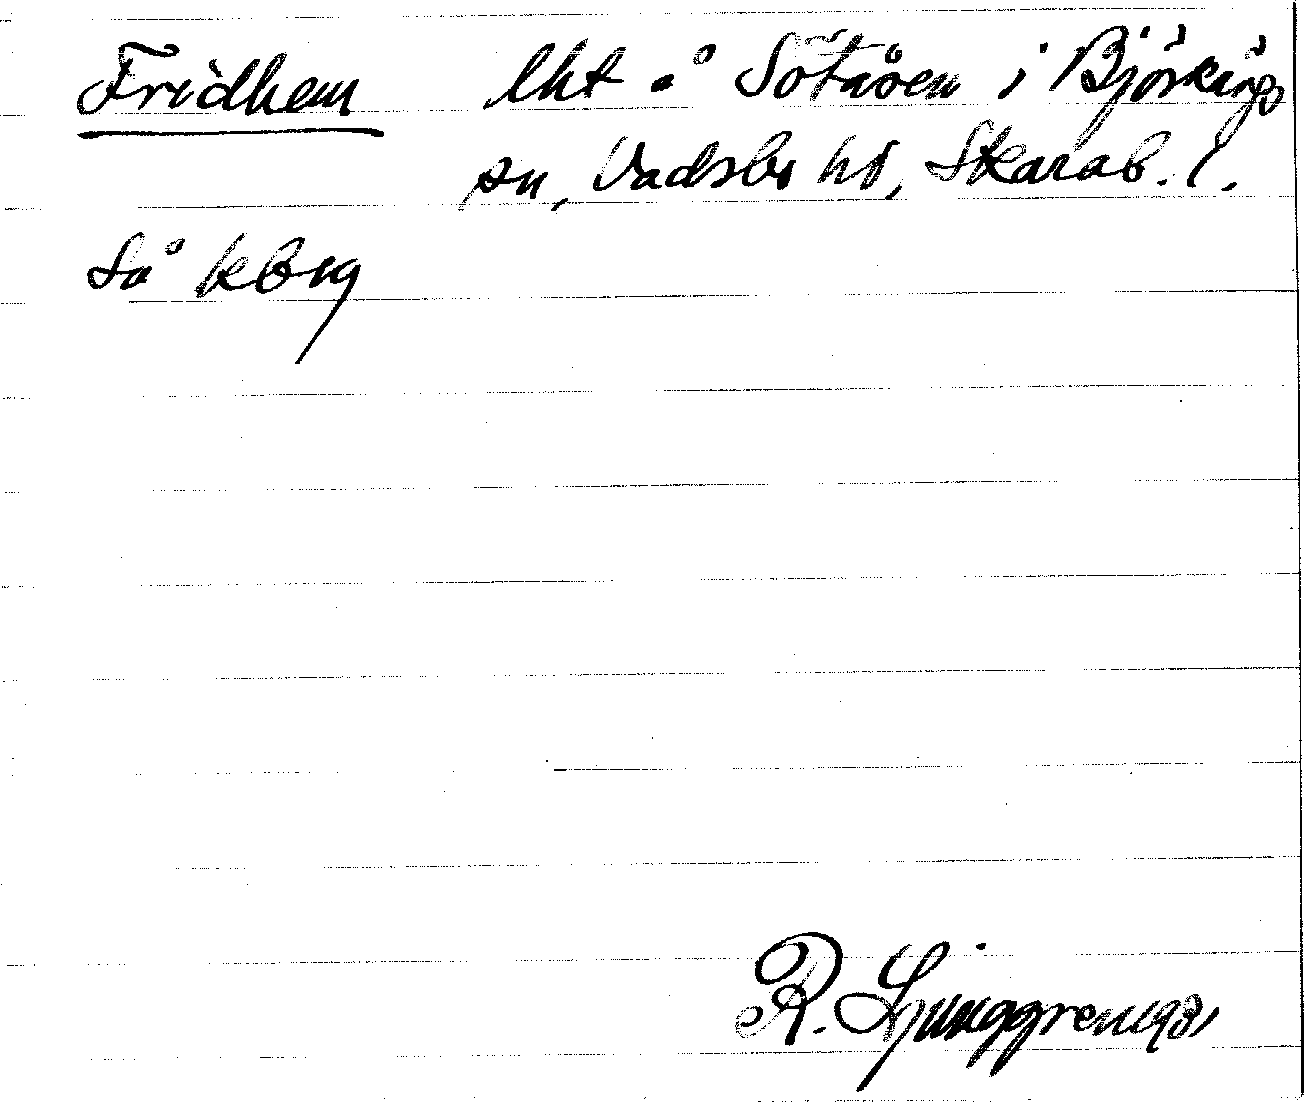 Fridhem lht å Sötåsen i Björkängs
sn, Vadsbo hd, Skarab. l.
Så kbrg
R. Ljunggren 1931